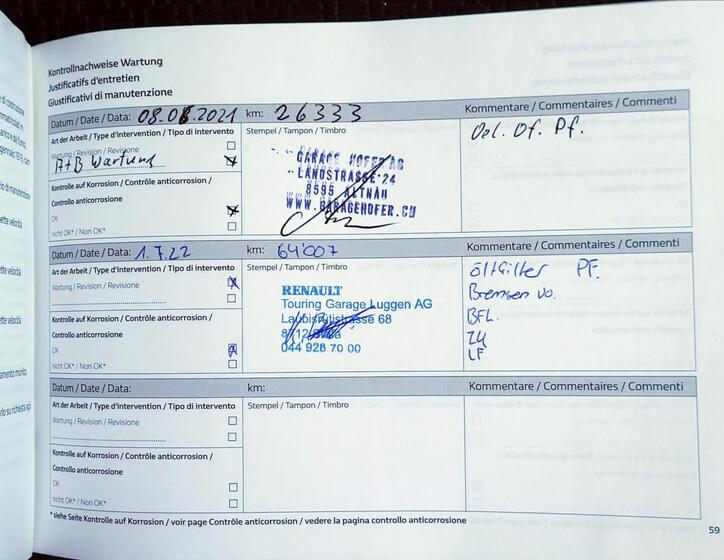 Kontrollnachweise Wartung
Justificatifs d'entretien
Giustificativi di manutenzione
Datum / Date / Data: 08.06.2021 km: 26333 Kommentare / Commentaires / Commenti
Art der Arbeit / Type d'intervention / Tipo di intervento Stempel / Tampon / Timbro Oel. Of. Pf.
Wartung / Revision / Revisione
A+B Wartung
GARAGE HOFER AG
LANDSTRASSE 24
8595 ALTNAU
WWW.GARAGEHOFER.CH
Kontrolle auf Korrosion / Contrôle anticorrosion /
Controllo anticorrosione
OK
nicht OK* / Non OK*
Datum / Date / Data: 1.7.22 km: 64'007 Kommentare / Commentaires / Commenti
Art der Arbeit / Type d'intervention / Tipo di intervento Stempel / Tampon / Timbro
Wartung / Revision / Revisione
RENAULT
Touring Garage Luggen AG
68
044 928 70 00
PF.
Bremsen vo.
BFL.
ZK
LF
Kontrolle auf Korrosion / Contrôle anticorrosion /
Controllo anticorrosione
OK
nicht OK* / Non OK*
Datum / Date / Data: km: Kommentare / Commentaires / Commenti
Art der Arbeit / Type d'intervention / Tipo di intervento Stempel / Tampon / Timbro
Wartung / Revision / Revisione
Kontrolle auf Korrosion / Contrôle anticorrosion /
Controllo anticorrosione
OK
nicht OK* / Non OK*
* siehe Seite Kontrolle auf Korrosion / voir page Contrôle anticorrosion / vedere la pagina controllo anticorrosione
59